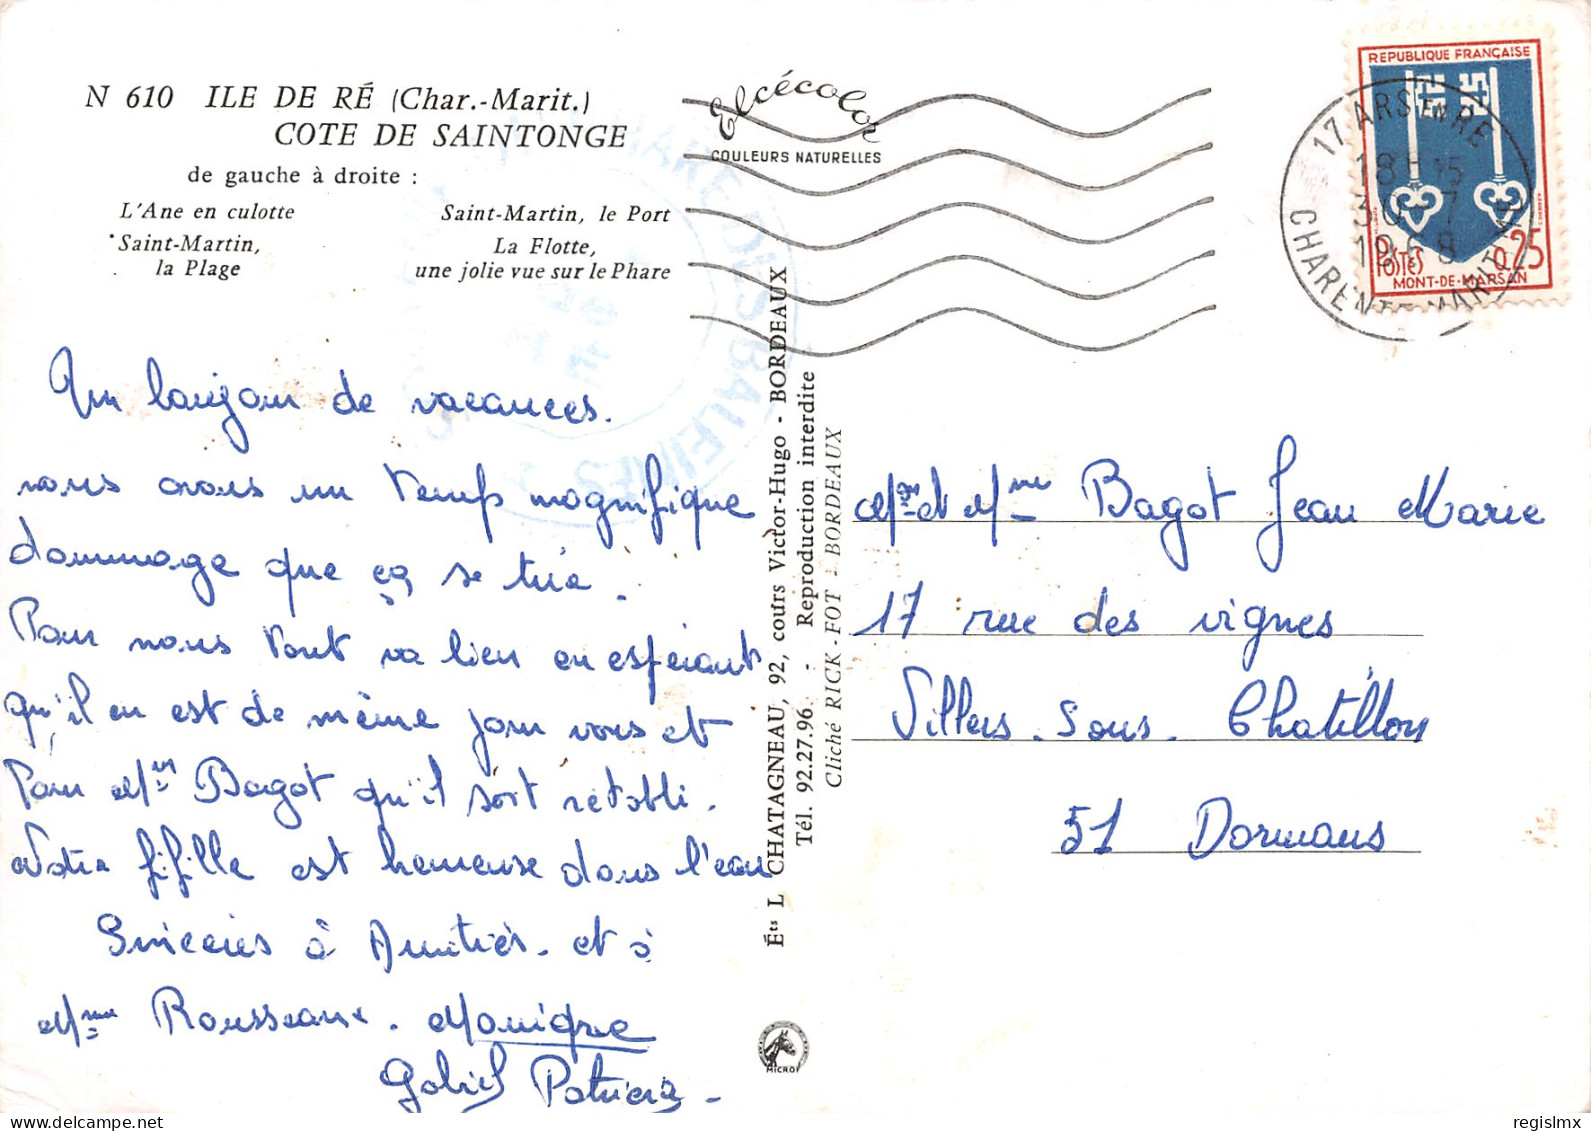 N 610 ILE DE RÉ (Char.-Marit.)
COTE DE SAINTONGE
de gauche à droite :
L'Ane en culotte
Saint-Martin, le Port
Saint-Martin,
la Plage
La Flotte,
une jolie vue sur le Phare
Elcécolor
COULEURS NATURELLES
PHARE DES BALEINES
REPUBLIQUE FRANÇAISE
POSTES
0,25
MONT-DE-MARSAN
17 ARS EN RE
18H15
30-7
1968
CHARENTE MARITIME
Un bonjour de vacances.
nous avons un temps magnifique
dommage que ça se tire.
Pour nous tout va bien en espérant
qu'il en est de même pour vous et
Pour Mr Bagot qu'il soit rétabli.
Votre fifille est heureuse dans l'eau
Sincères Amitiés. et à
Mme Rousseaux. Monique
Gabriel Patricia
Éts L CHATAGNEAU, 92, cours Victor-Hugo - BORDEAUX
Tél. 92.27.96 - Reproduction interdite
Cliché RICK-FOT - BORDEAUX
MICROF
Mr et Mme Bagot Jean Marie
17 rue des vignes
Villers. Sous. Chatillon
51 Dormans
regislmx